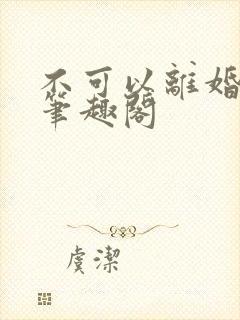 不可以離婚
筆趣閣
虞潔